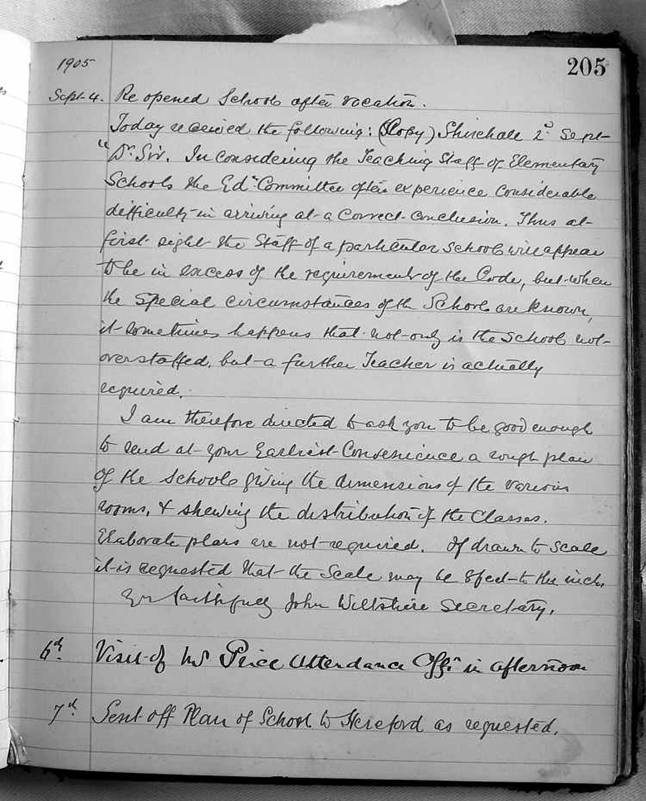 1905
205
Sept 4. Re opened Schools after vacation.
Today received the following: (Copy) Shirehall 2d Sept
"Dr Sir. In considering the Teaching Staff of Elementary
Schools the Edn Committee often experience considerable
difficulty in arriving at a correct conclusion. Thus at
first sight the Staff of a particular school will appear
to be in excess of the requirements of the Code, but when
the special circumstances of the School are known,
it sometimes happens that not only is the School not
overstaffed, but a further Teacher is actually
required.
I am therefore directed to ask you to be good enough
to send at your Earliest Convenience a rough plan
of the Schools giving the dimensions of the various
rooms, & shewing the distribution of the Classes.
Elaborate plans are not required. If drawn to scale
it is requested that the Scale may be 8 feet to the inch.
Yrs faithfully John Wiltshire Secretary.
6th. Visit of Mr Price Attendance Offr in afternoon
7th. Sent off Plan of School to Hereford as requested.